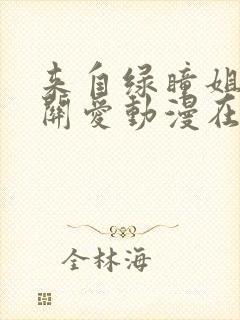 来自绿瞳姐
關爱動漫在
全林海